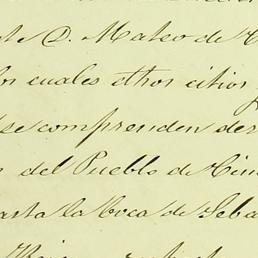 D. Mateo de
los cuales dhos citios
se comprenden des
del Pueblo de Cim
asta la boca de Seba